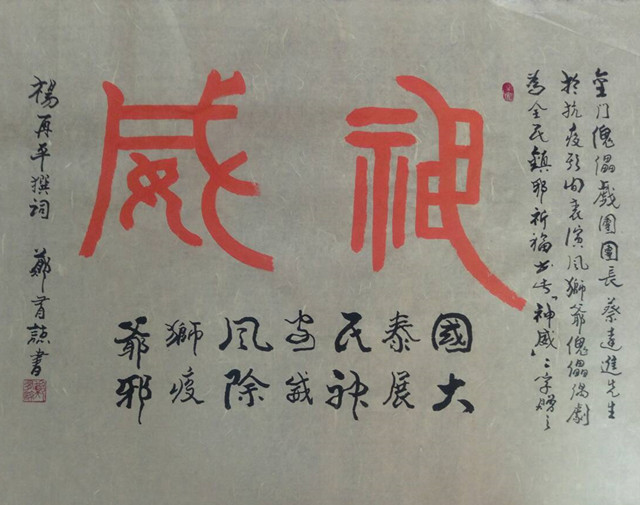 金门傀儡戲團團長蔡達進先生
於抗疫期间表演风獅爺傀儡偶劇
為全民鎮邪祈福书此"神威"二字贈之
神威
國泰民安风獅爺
大展神威除疫邪
楊再平撰词
鄭書